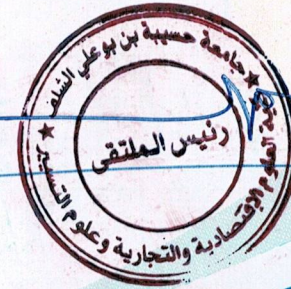 جامعة حسيبة بن بوعلي الشلف
كلية العلوم الإقتصادية والتجارية وعلوم التسيير
رئيس الملتقى